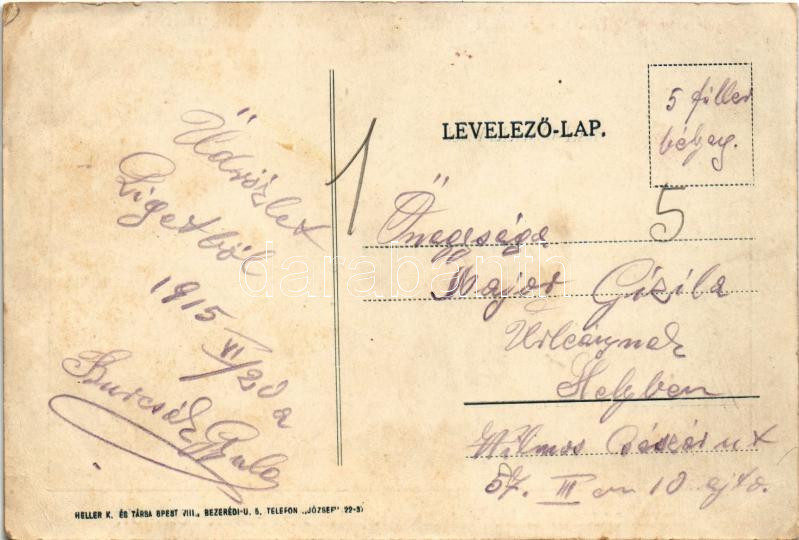 Üdvözlet
Ligetből
1915
VI/20 a
Burcsák Gyula
1
LEVELEZŐ-LAP.
5 fillér
bélyeg.
5
Őnagysága
Major Gizila
Urleánynak
Helyben
Vilmos Császár ut
57. III em 10 ajtó.
darabanth
HELLER K. ÉS TÁRSA BPEST VIII., BEZERÉDI-U. 5. TELEFON „JÓZSEF" 22-5